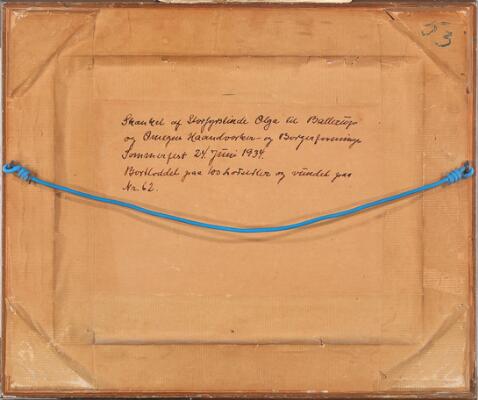 53
Skænket af Storfyrstinde Olga til Ballerup
og Omegns Haandværker- og Borgerforenings
Sommerfest 24 Juni 1934.
Bortloddet paa 100 Lodsedler og vundet paa
Nr. 62.